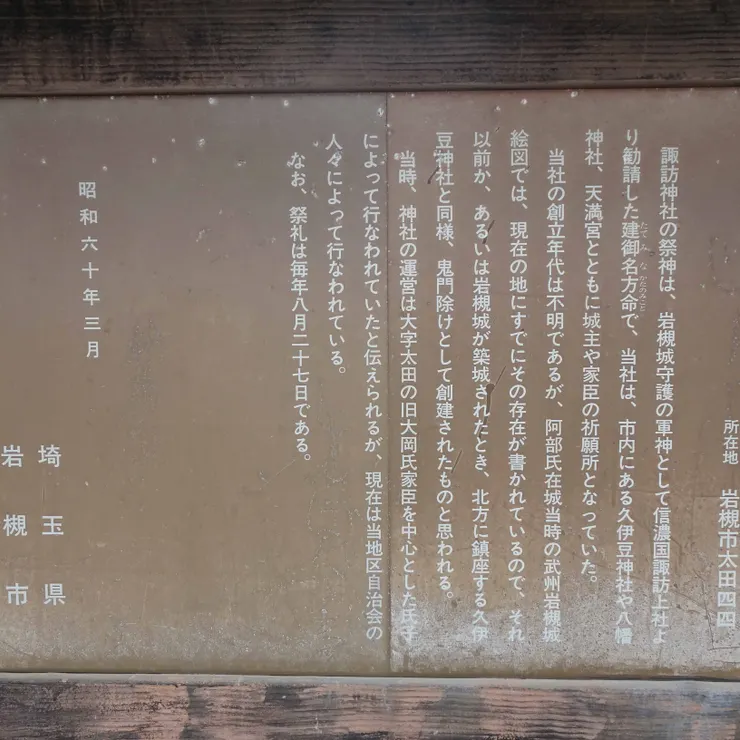 所在地 岩槻市太田四四
諏訪神社の祭神は、岩槻城守護の軍神として信濃国諏訪上社よ
り勧請した建御名方命で、当社は、市内にある久伊豆神社や八幡
たてみなかたのみこと
神社、天満宮とともに城主や家臣の祈願所となっていた。
当社の創立年代は不明であるが、阿部氏在城当時の武州岩槻城
絵図では、現在の地にすでにその存在が書かれているので、それ
以前か、あるいは岩槻城が築城されたとき、北方に鎮座する久伊
豆神社と同様、鬼門除けとして創建されたものと思われる。
当時、神社の運営は大字太田の旧大岡氏家臣を中心とした氏子
によって行なわれていたと伝えられるが、現在は当地区自治会の
人々によって行なわれている。
なお、祭礼は毎年八月二十七日である。
昭和六十年三月
埼玉県
岩槻市